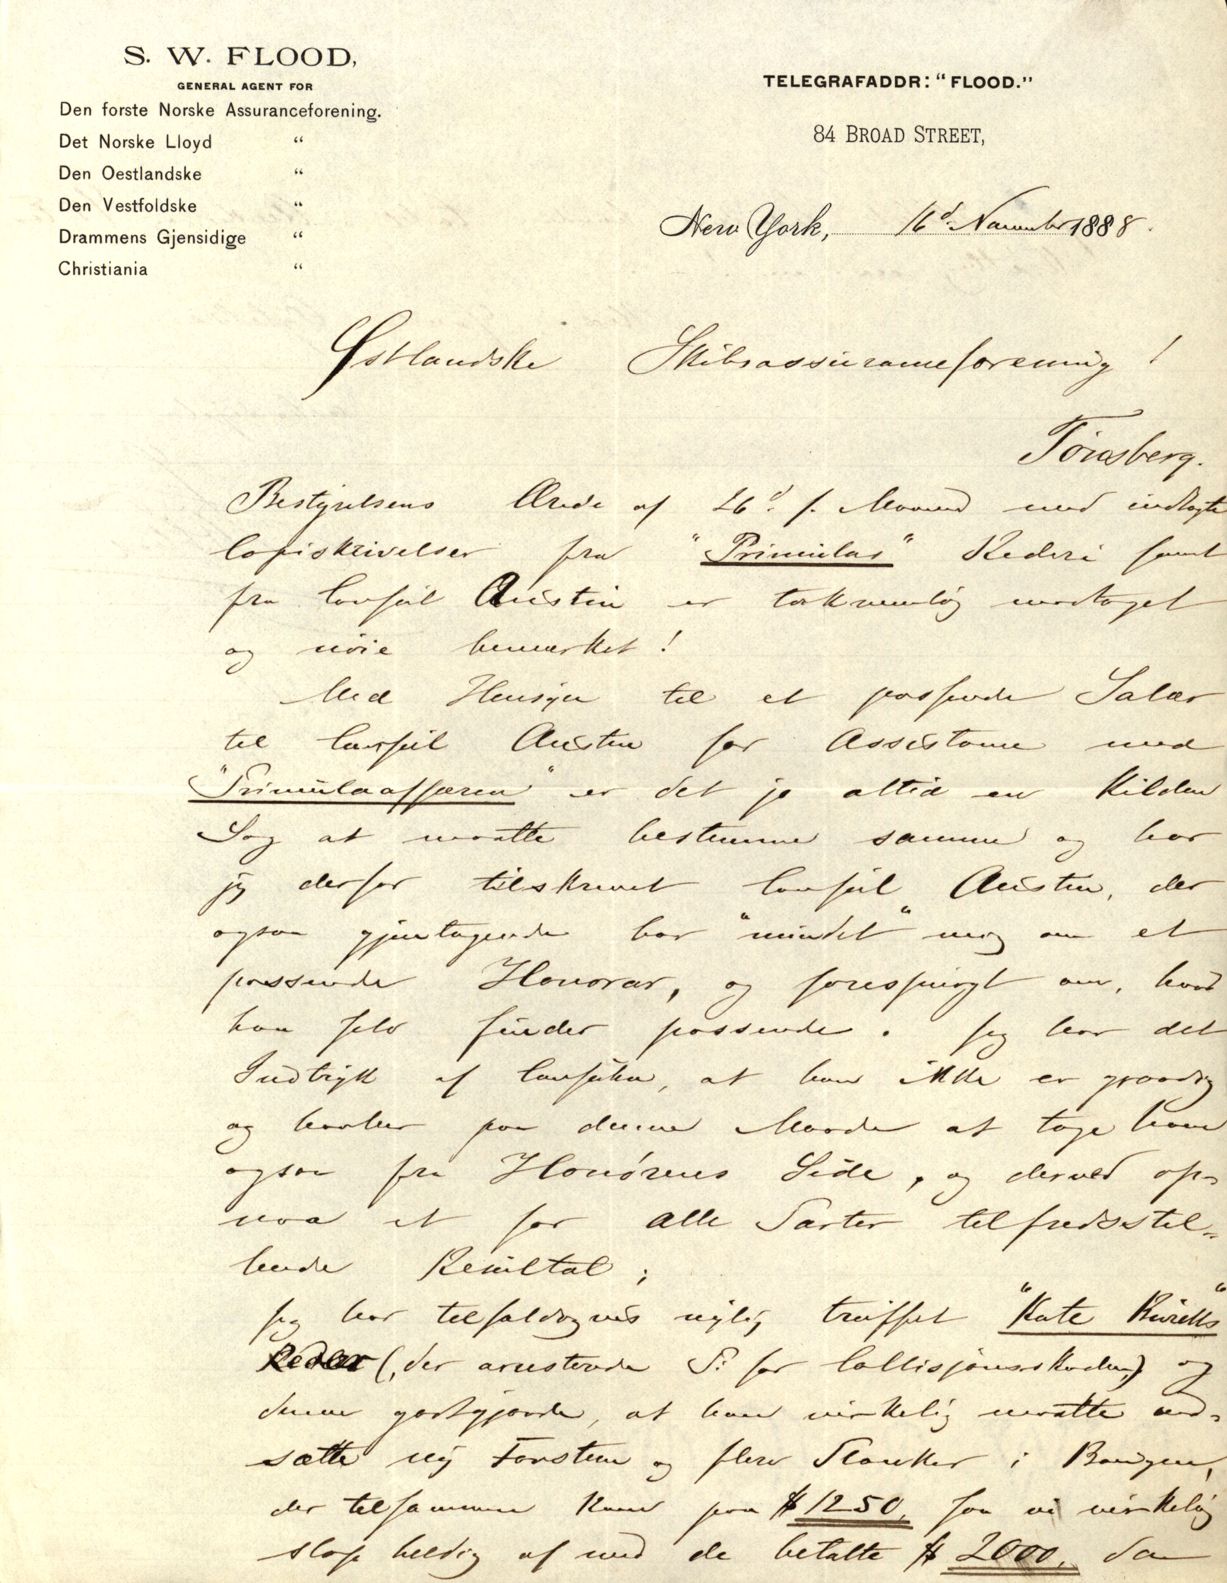 S. W. FLOOD,
GENERAL AGENT FOR
Den forste Norske Assuranceforening.
Det Norske Lloyd "
Den Oestlandske "
Den Vestfoldske "
Drammens Gjensidige "
Christiania "
TELEGRAFADDR: "FLOOD."
84 BROAD STREET,
New York, 16d November 1888.
Østlandske Skibsassuranceforening!
Tønsberg.
Bestyrelsens Ærede af 26d f. Maaned med indlagte
Copiskrivelser fra "Primulas" Rederi samt
fra Consul Austin er taknemlig modtaget
og nøie bemærket!
Med Hensyn til et passende Salær
til Consul Austin for Assistance med
"Primulaaffæren" er det jo altid en kilden
Sag at maatte bestemme samme og har
jeg derfor tilskrevet Consul Austin, der
ogsaa gjentagende har "mindet" mig om et
passende Honorar, og forespurgt om, hvad
han selv finder passende. Jeg har det
Indtryk af Consulen, at han ikke er graadig
og haaber paa denne Maade at tage ham
ogsaa fra Honørens Side, og derved op-
naa et for alle Parter tilfredsstil-
lende Resultat;
Jeg har tilfældigvis nylig truffet "Kate
Reder (, der arresterede P: for Collisjonsskaden,) og
denne godtgjorde, at han virkelig maatte ind-
sætte ny Forstevn og flere Planker i Bougen,
der tilsammen kom paa $1250, saa vi virkelig
slap heldig af med de betalte $2000, da